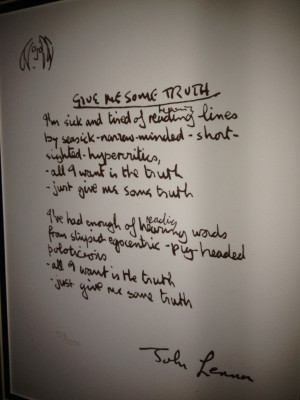 GIVE ME SOME TRUTH
hearing
I'm sick and tired of reading lines
by seasick-narrow-minded-short-
sighted-hypercritics,
-all I want is the truth
-just give me some truth
reading
I've had enough of hearing words
from stupid-egocentric-pig-headed
-all I want is the truth
-just give me some truth
John Lennon